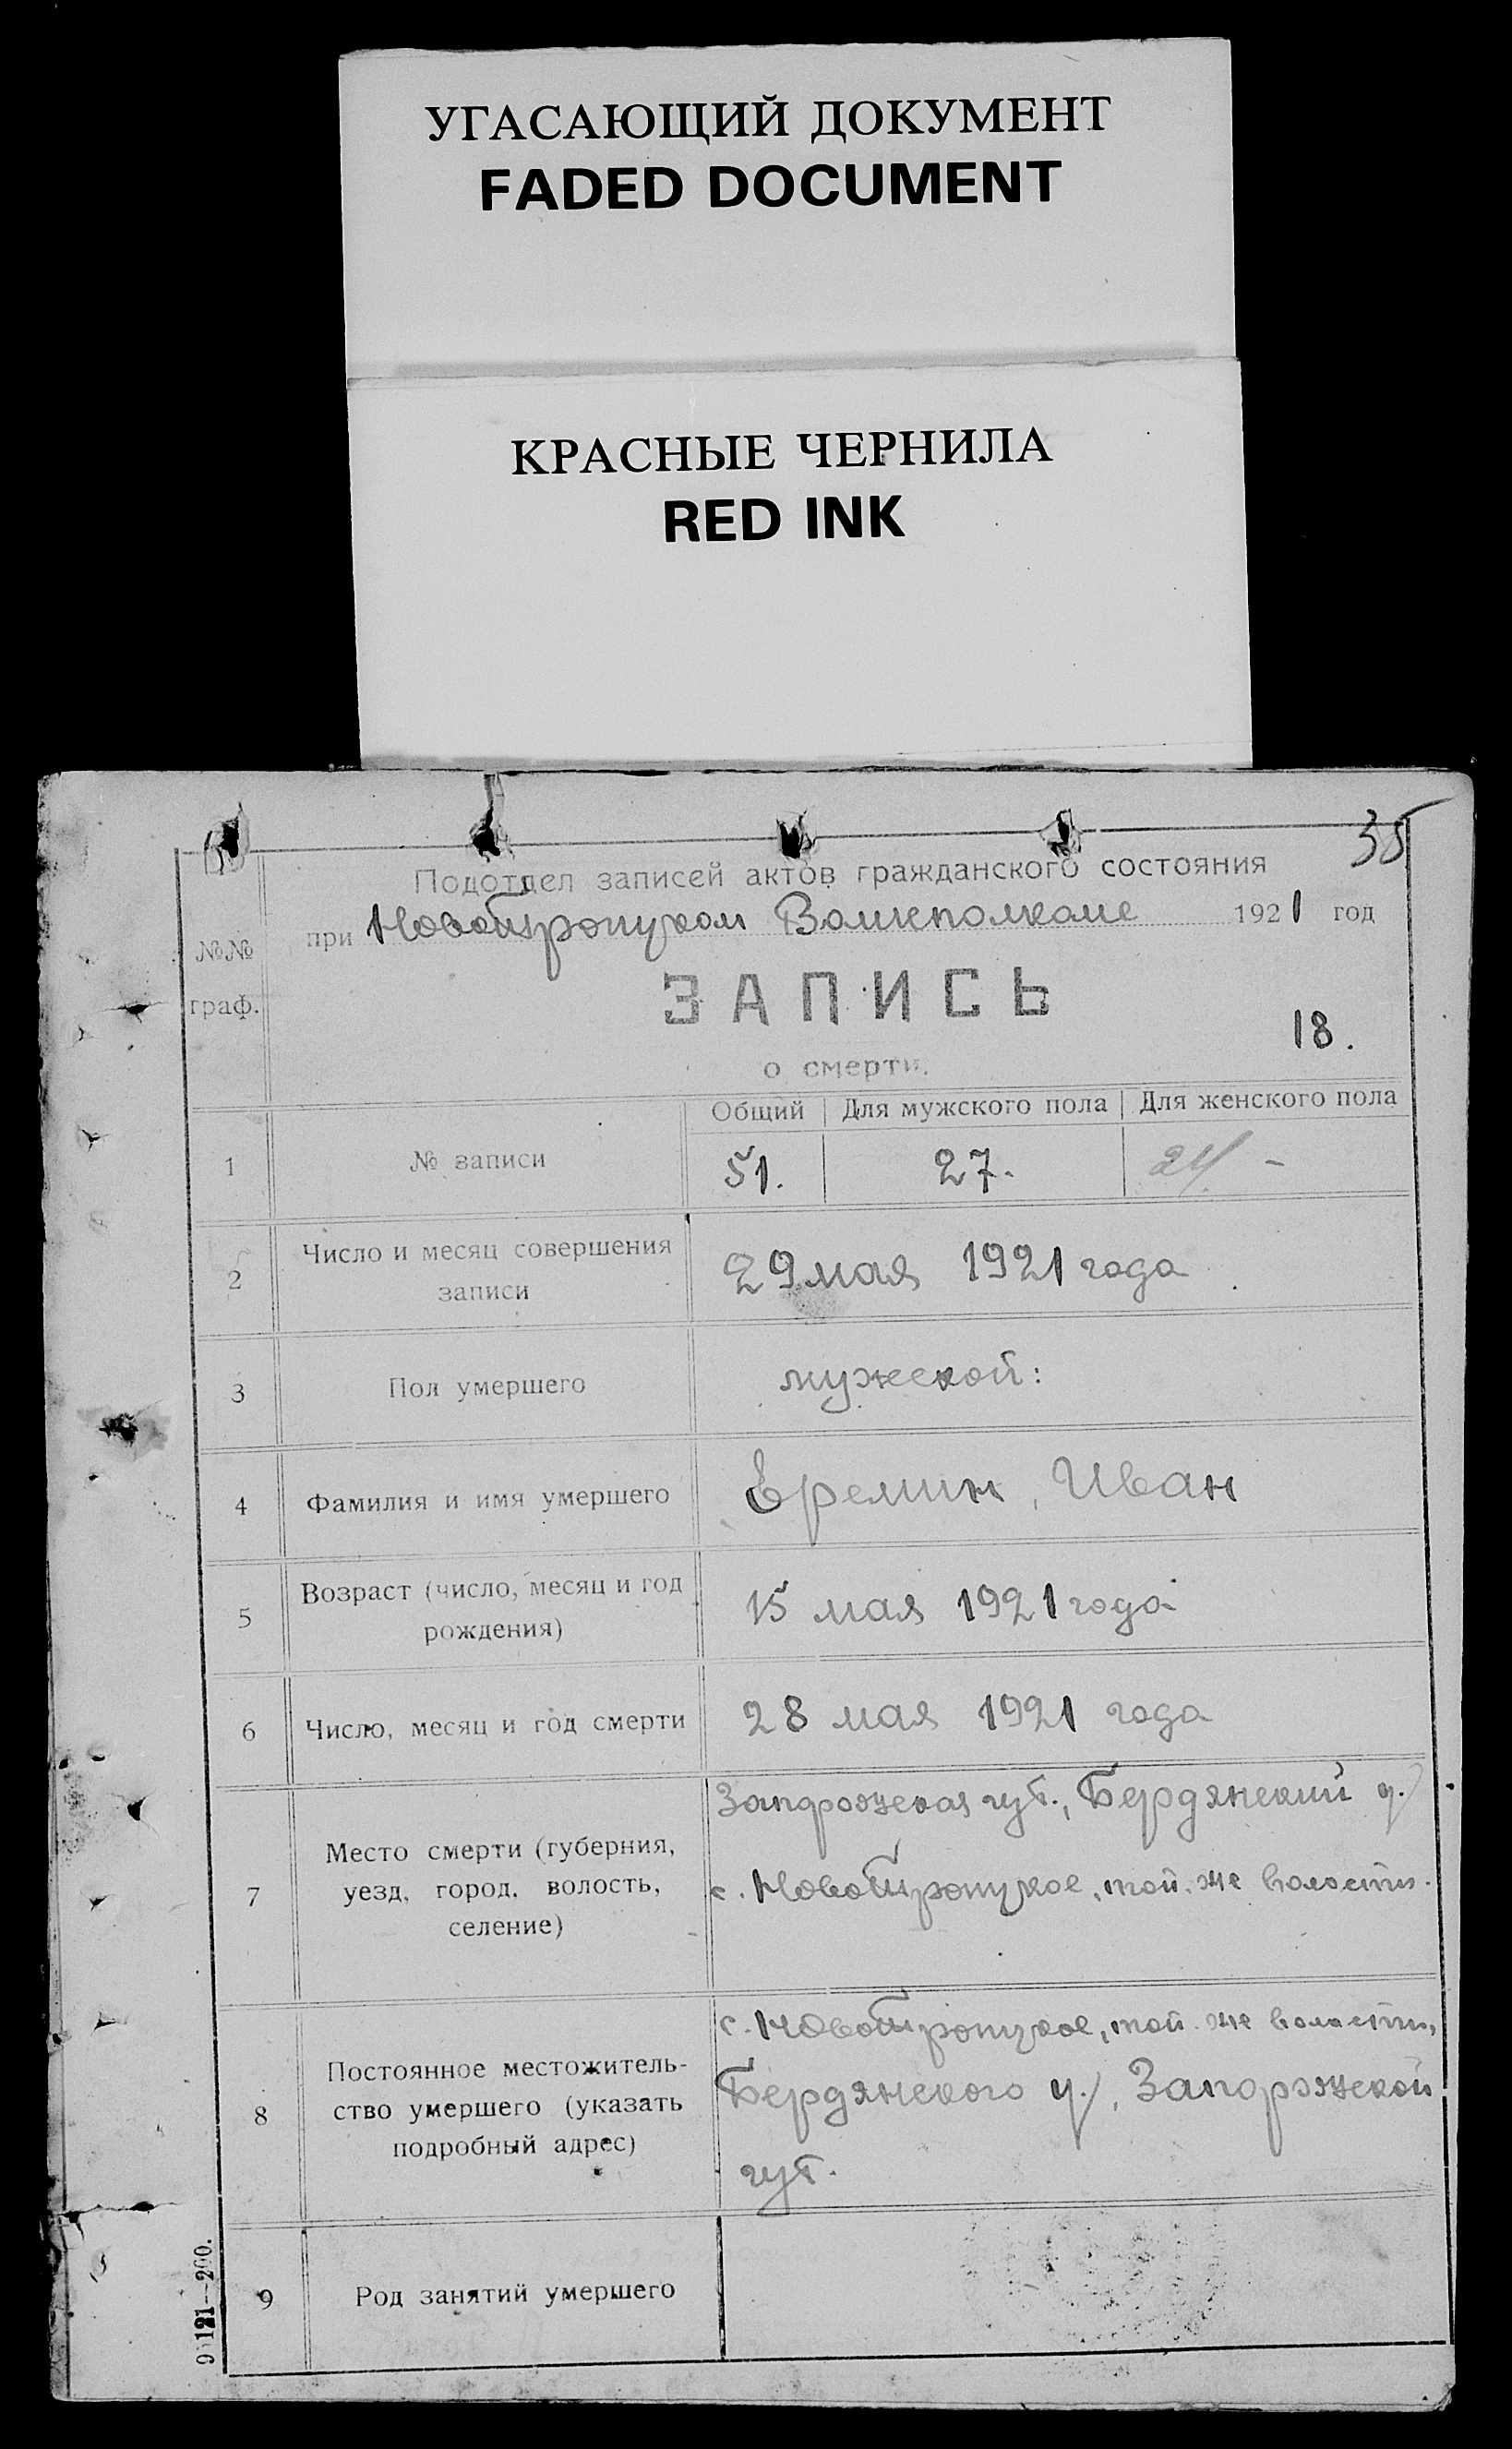 УГАСАЮЩИЙ ДОКУМЕНТ
FADED DOCUMENT
КРАСНЫЕ ЧЕРНИЛА
RED INK
35
Подотдел записей актов гражданского состояния
при Новотроицком Волисполкоме 1921 год
№№
граф.
ЗАПИСЬ
18.
о смерти.
Общий Для мужского пола Для женского пола
1 № записи 51. 27. 24 -
2 Число и месяц совершения
записи
29 мая 1921 года
3 Пол умершего мужской:
4 Фамилия и имя умершего Еремин, Иван
5 Возраст (число, месяц и год
рождения)
15 мая 1921 года
6 Число, месяц и год смерти 28 мая 1921 года
7 Место смерти (губерния,
уезд, город, волость,
селение)
Запорожская губ., Бердянский у.
с. Новотроицкое, той-же волости.
8 Постоянное местожитель-
ство умершего (указать
подробный адрес)
с. Новотроицкое, той-же волости,
Бердянского у., Запорожской
губ.
9 Род занятий умершего